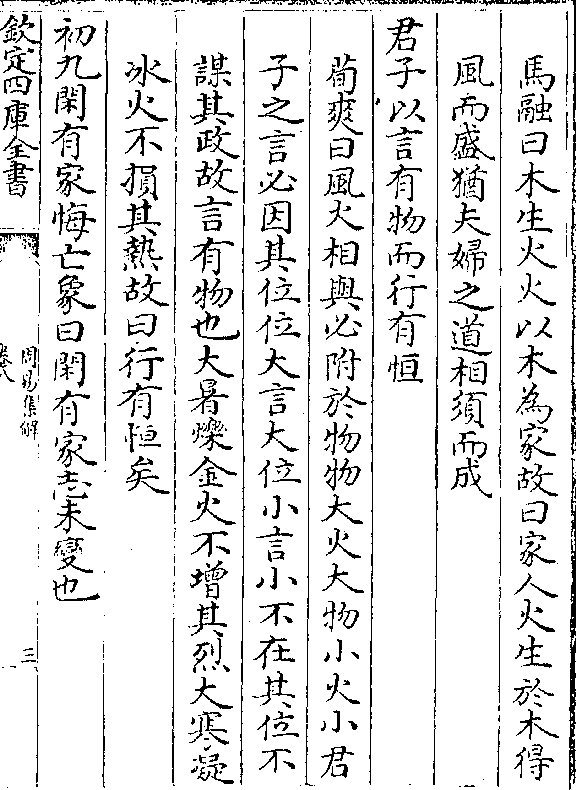 馬融曰木生火火以木為家故曰家人火生於木得
風而盛猶夫婦之道相須而成
君子以言有物而行有恒
荀爽曰風火相與必附於物物大火大物小火小君
子之言必因其位位大言大位小言小不在其位不
謀其政故言有物也大暑爍金火不增其烈大寒凝
冰火不損其熱故曰行有恒矣
初九閑有家悔亡象曰閑有家志未變也
欽定四庫全書
周易集解
卷八
三